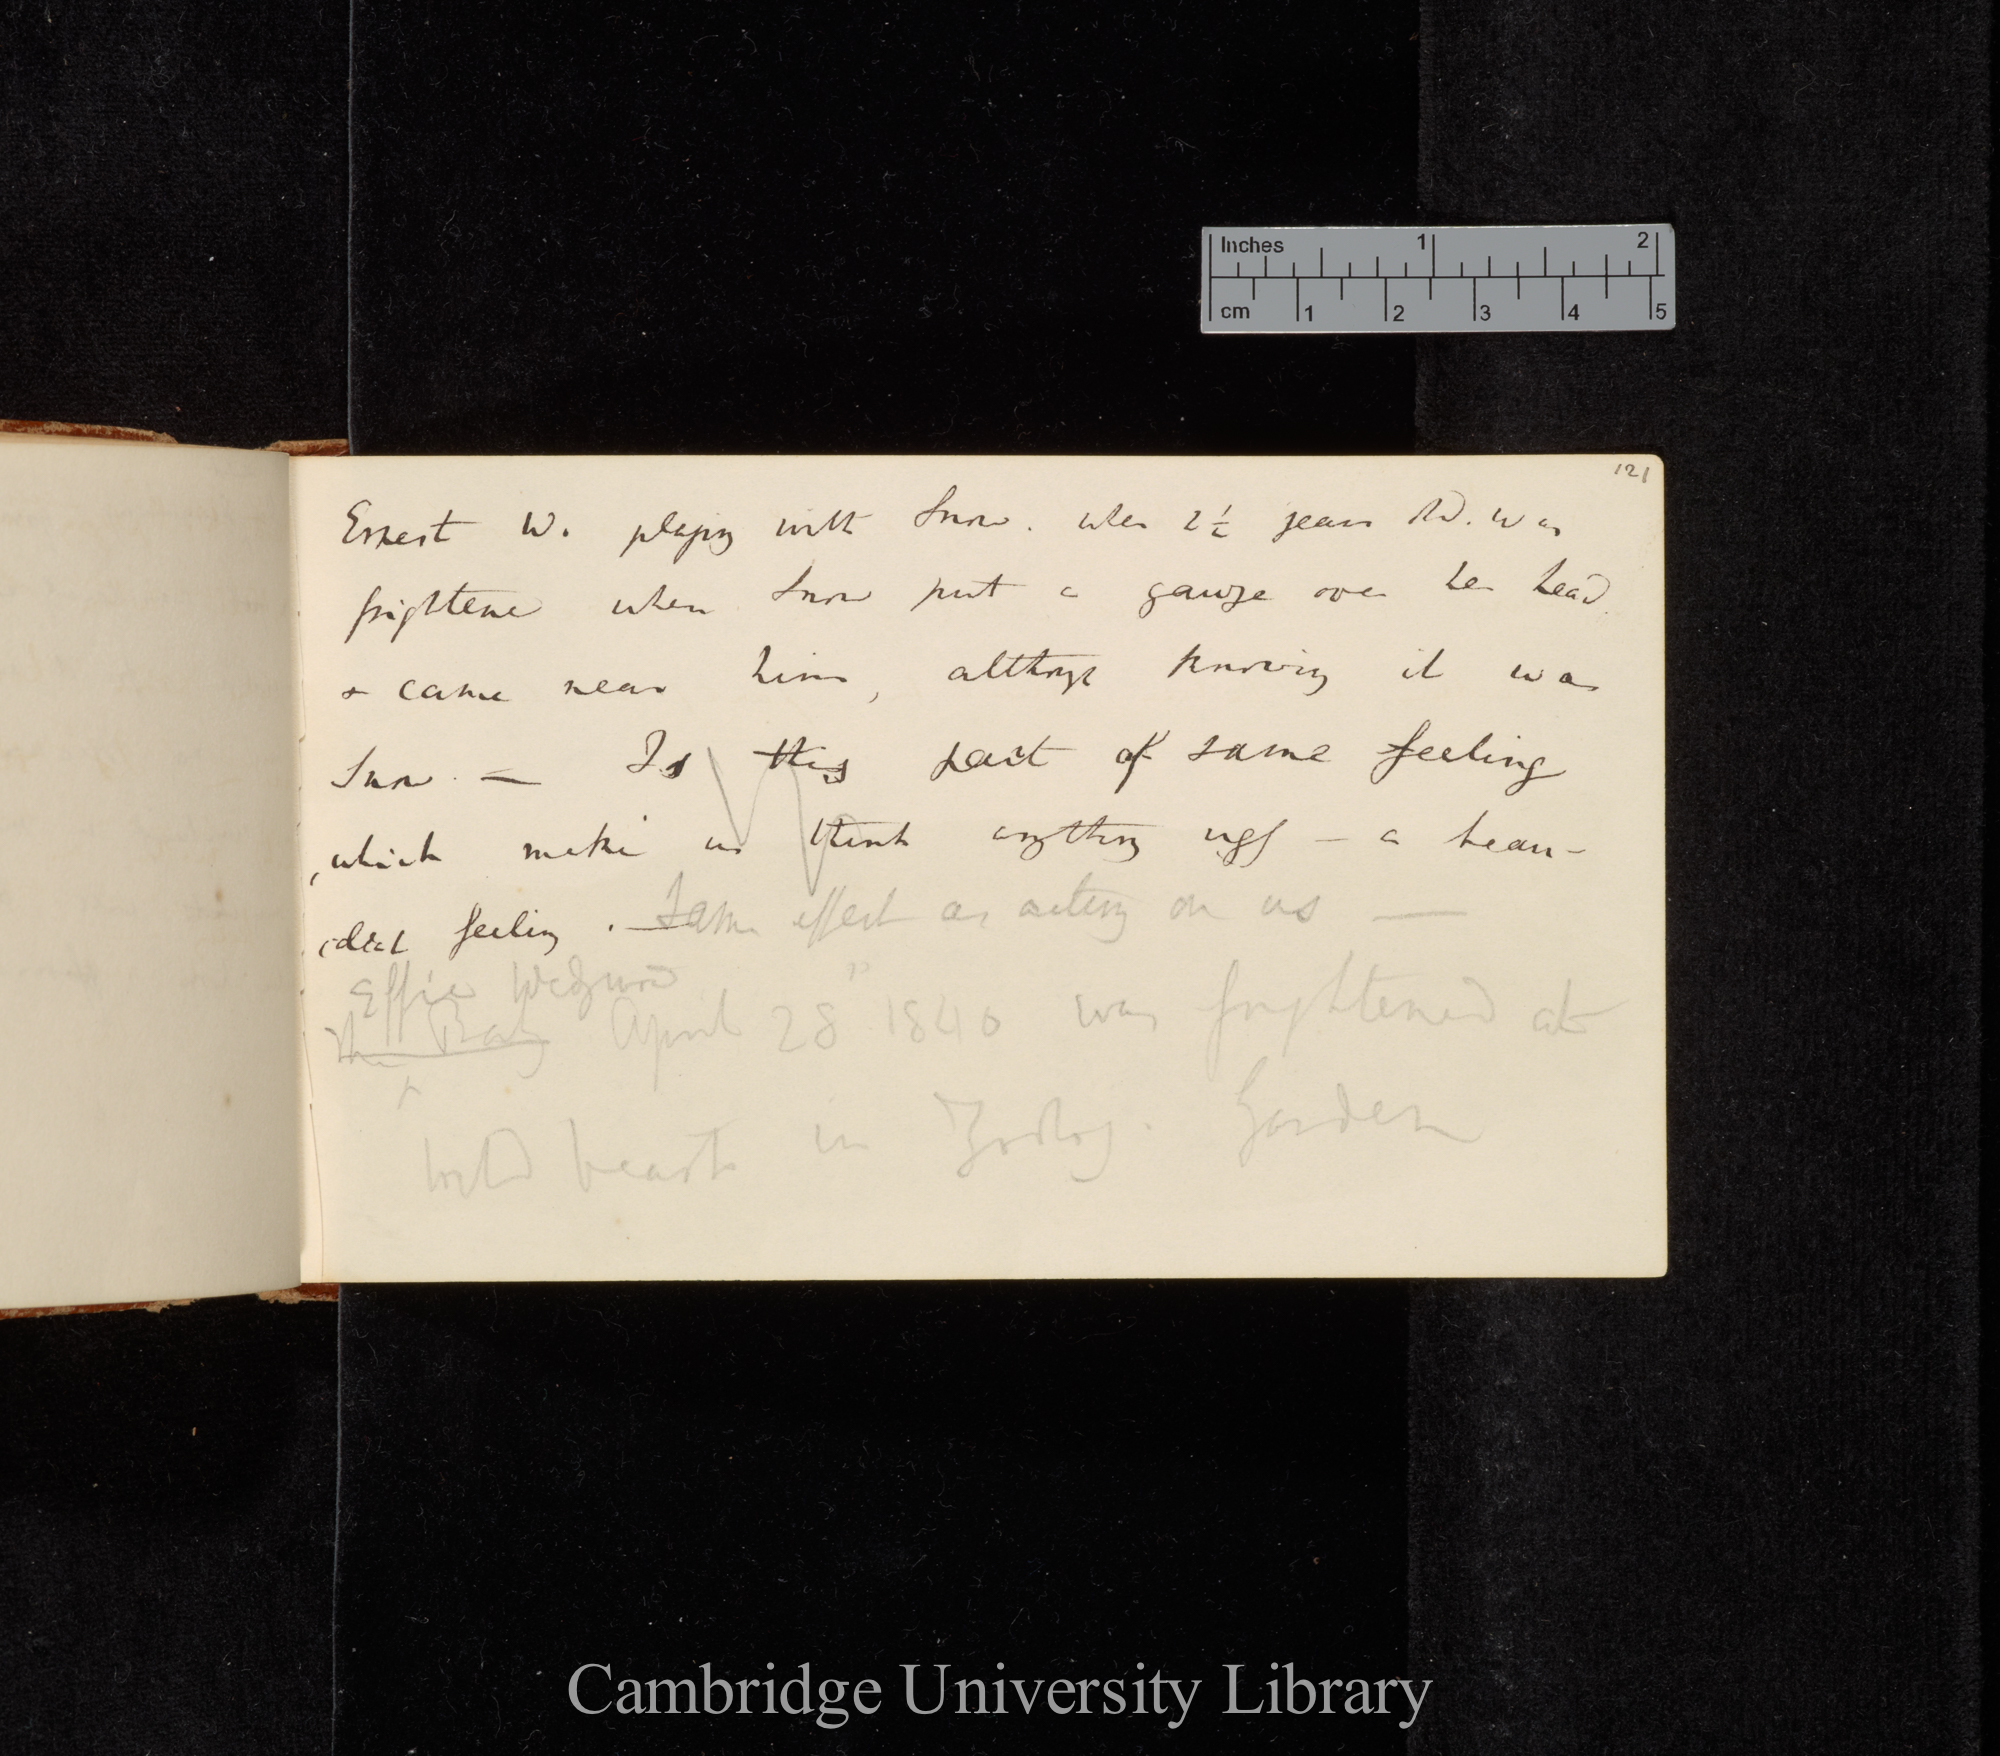 Inches 1 2
cm 1 2 3 4 5
121
Ernest W. playing with Snow. when 2½ years old. was
frightene when Snow put a gauze over her head.
& came near him, although knowing it was
Snow. — Is this part of same feeling
which make us think anything ugly — a beau-
ideal feeling. — Same effect as acting on us —
Effie Wedgwood
The Baby April 28th 1840 was frightened at
wild beasts in Zoolog. Garden
Cambridge University Library